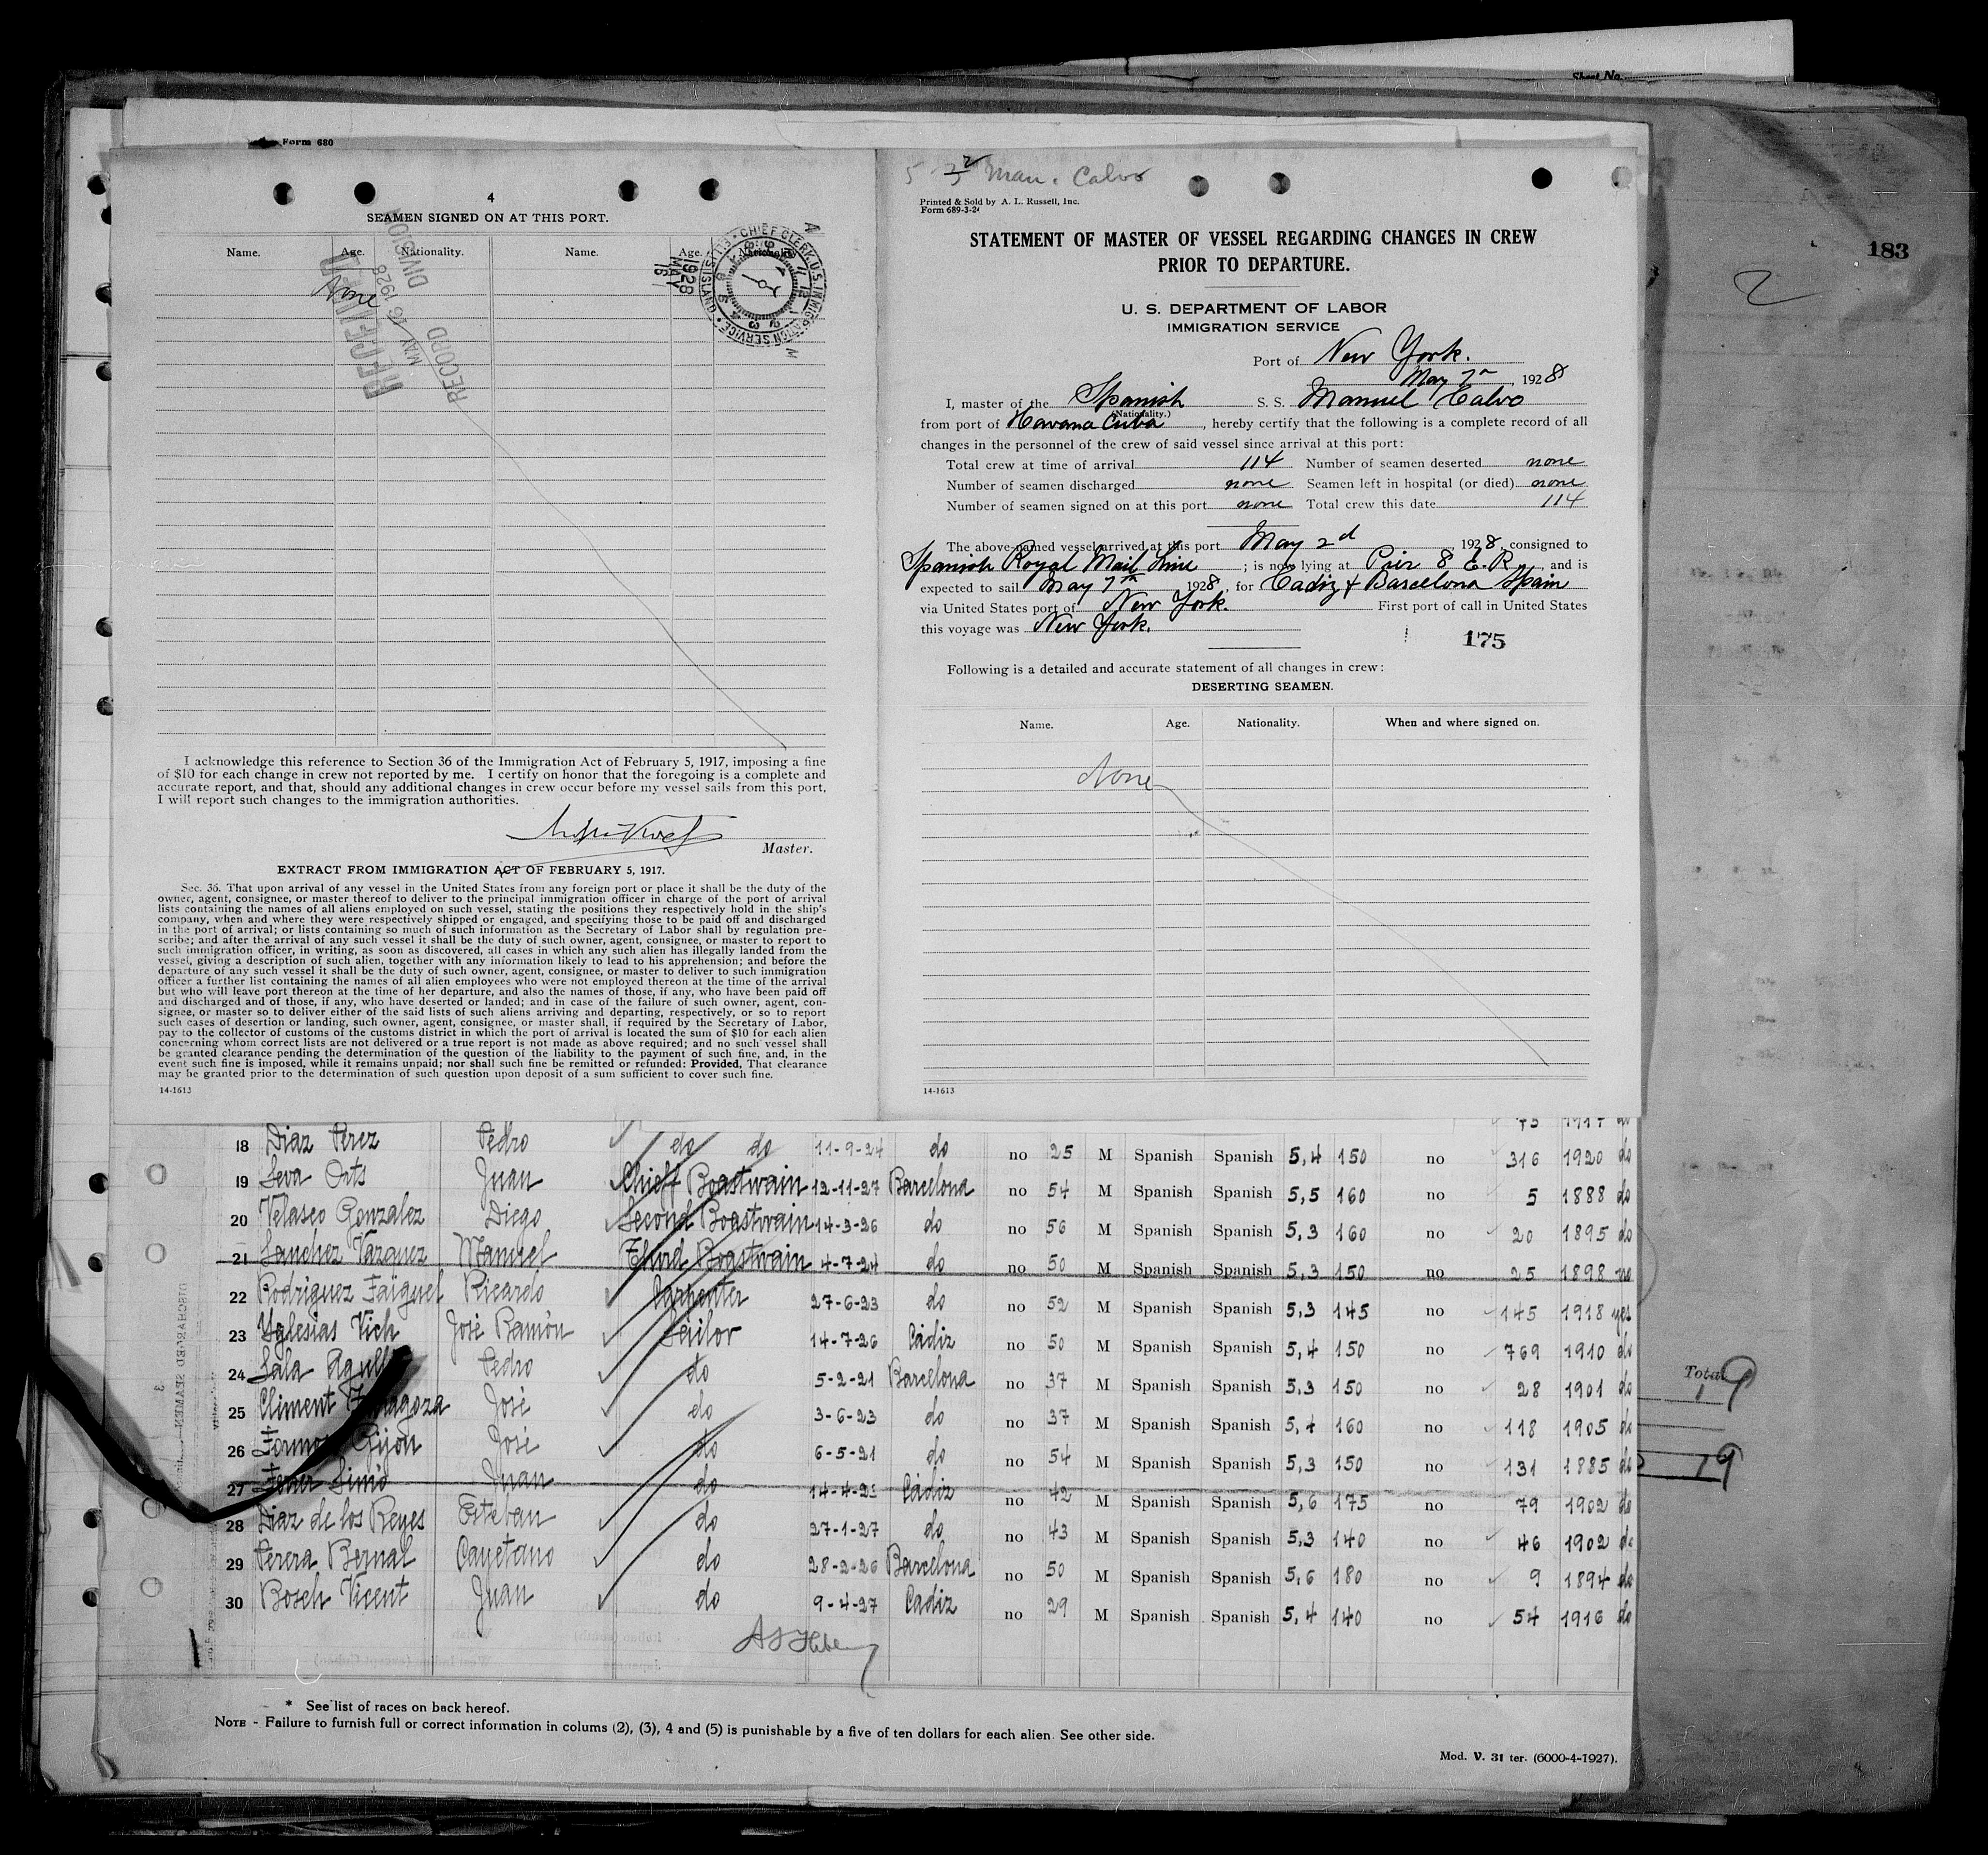 Sheet No.
183
2
Form 680
4
SEAMEN SIGNED ON AT THIS PORT.
Name. Age. Nationality. Name. Age. Nationality.
None
RECEIVED
MAY 16 1928
RECORD DIVISION
1928 MAY 16
CHIEF CLERK, U.S. IMMIGRATION SERVICE
I acknowledge this reference to Section 36 of the Immigration Act of February 5, 1917, imposing a fine
of $10 for each change in crew not reported by me. I certify on honor that the foregoing is a complete and
accurate report, and that, should any additional changes in crew occur before my vessel sails from this port,
I will report such changes to the immigration authorities.
Master.
EXTRACT FROM IMMIGRATION ACT OF FEBRUARY 5, 1917.
Sec. 36. That upon arrival of any vessel in the United States from any foreign port or place it shall be the duty of the
owner, agent, consignee, or master thereof to deliver to the principal immigration officer in charge of the port of arrival
lists containing the names of all aliens employed on such vessel, stating the positions they respectively hold in the ship's
company, when and where they were respectively shipped or engaged, and specifying those to be paid off and discharged
in the port of arrival; or lists containing so much of such information as the Secretary of Labor shall by regulation pre-
scribe; and after the arrival of any such vessel it shall be the duty of such owner, agent, consignee, or master to report to
such immigration officer, in writing, as soon as discovered, all cases in which any such alien has illegally landed from the
vessel, giving a description of such alien, together with any information likely to lead to his apprehension; and before the
departure of any such vessel it shall be the duty of such owner, agent, consignee, or master to deliver to such immigration
officer a further list containing the names of all alien employees who were not employed thereon at the time of the arrival
but who will leave port thereon at the time of her departure, and also the names of those, if any, who have been paid off
and discharged and of those, if any, who have deserted or landed; and in case of the failure of such owner, agent, con-
signee, or master so to deliver either of the said lists of such aliens arriving and departing, respectively, or so to report
such cases of desertion or landing, such owner, agent, consignee, or master shall, if required by the Secretary of Labor,
pay to the collector of customs of the customs district in which the port of arrival is located the sum of $10 for each alien
concerning whom correct lists are not delivered or a true report is not made as above required; and no such vessel shall
be granted clearance pending the determination of the question of the liability to the payment of such fine, and, in the
event such fine is imposed, while it remains unpaid; nor shall such fine be remitted or refunded: Provided, That clearance
may be granted prior to the determination of such question upon deposit of a sum sufficient to cover such fine.
14-1613
Man. Calvo
Printed & Sold by A. L. Russell, Inc.
Form 689-3-24
STATEMENT OF MASTER OF VESSEL REGARDING CHANGES IN CREW
PRIOR TO DEPARTURE.
U. S. DEPARTMENT OF LABOR
IMMIGRATION SERVICE
Port of New York.
May 7th, 1928
I, master of the Spanish S. S. Manuel Calvo
(Nationality.)
from port of Havana Cuba, hereby certify that the following is a complete record of all
changes in the personnel of the crew of said vessel since arrival at this port:
Total crew at time of arrival 114 Number of seamen deserted none
Number of seamen discharged none Seamen left in hospital (or died) none
Number of seamen signed on at this port none Total crew this date 114
The above-named vessel arrived at this port May 2d, 1928, consigned to
Spanish Royal Mail Line; is now lying at Pier 8 E.R., and is
expected to sail May 7th 1928, for Cadiz & Barcelona Spain
via United States port of New York. First port of call in United States
this voyage was New York.
175
Following is a detailed and accurate statement of all changes in crew:
DESERTING SEAMEN.
Name. Age. Nationality. When and where signed on.
None
14-1613
75 1917 do
18 Diaz Perez Pedro do do 11-9-24 do no 25 M Spanish Spanish 5,4 150 no 316 1920 do
19 Seva Orts Juan Chief Boastwain 12-11-27 Barcelona no 54 M Spanish Spanish 5,5 160 no 5 1888 do
20 Velasco Gonzalez Diego Second Boastwain 14-3-26 do no 56 M Spanish Spanish 5,3 160 no 20 1895 do
21 Sanchez Vazquez Manuel Third Boastwain 4-7-24 do no 50 M Spanish Spanish 5,3 150 no 25 1898 no
22 Rodriguez Faiguel Ricardo Carpenter 27-6-23 do no 52 M Spanish Spanish 5,3 145 no 145 1918 yes
23 Yglesias Vich José Ramón Sailor 14-7-26 Cádiz no 50 M Spanish Spanish 5,4 150 no 769 1910 do
24 Sala Pedro do 5-2-21 Barcelona no 37 M Spanish Spanish 5,3 150 no 28 1901 do
25 Climent José do 3-6-23 do no 37 M Spanish Spanish 5,4 160 no 118 1905 do
26 Gijon José do 6-5-21 do no 54 M Spanish Spanish 5,3 150 no 131 1885 do
27 Juan do Cádiz no 42 M Spanish Spanish 5,6 175 no 79 1902 do
28 Diaz de los Reyes Esteban do 27-1-27 do no 43 M Spanish Spanish 5,3 140 no 46 1902 do
29 Perera Bernal Cayetano do 28-2-26 Barcelona no 50 M Spanish Spanish 5,6 180 no 9 1894 do
30 Bosch Vicent Juan do 9-4-27 Cadiz no 29 M Spanish Spanish 5,4 140 no 54 1916 do
Total
* See list of races on back hereof.
NOTE - Failure to furnish full or correct information in colums (2), (3), 4 and (5) is punishable by a five of ten dollars for each alien. See other side.
Mod. V. 31 ter. (6000-4-1927).